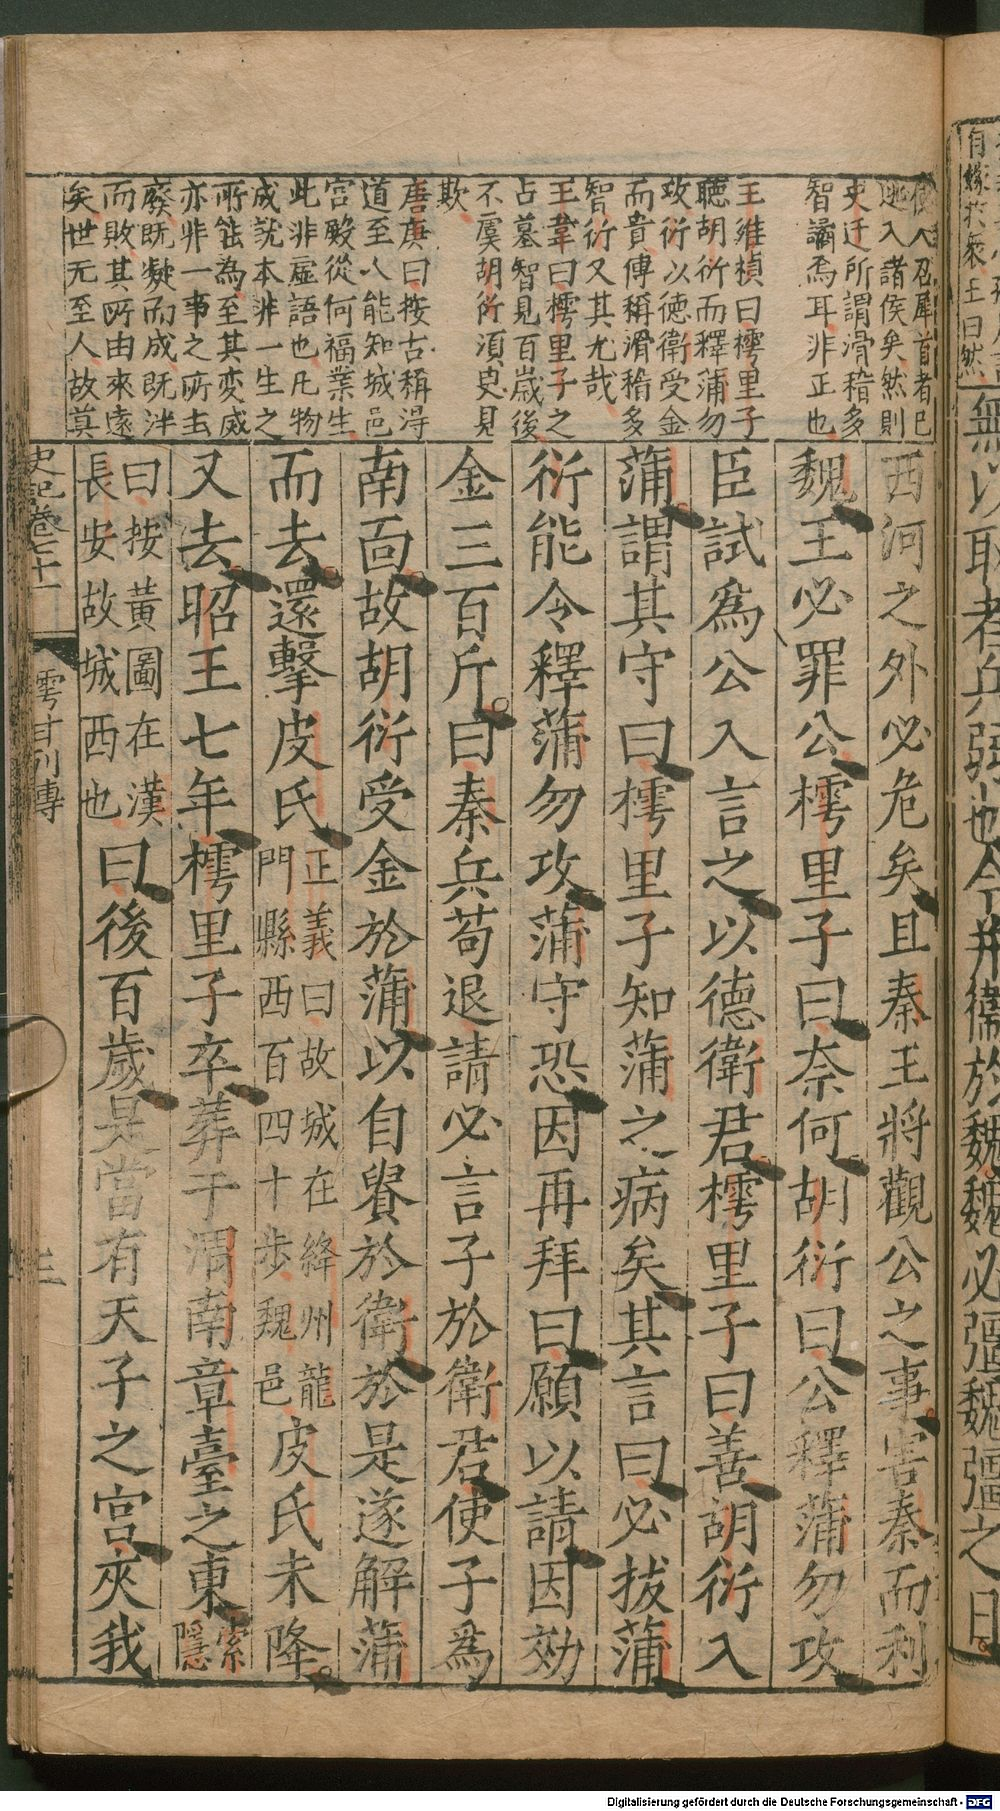 自緣於衆王曰然
無以耻者兵弱也今并衛於魏魏必彊魏彊之日
使人召犀首者已
逃入諸侯矣然則
史迁所謂滑稽多
智譎焉耳非正也
王維楨曰樗里子
聽胡衍而釋蒲勿
攻衍以德衛受金
而貴傳稱滑稽多
智衍又其尤哉
王韋曰樗里子之
占墓智見百歲後
不虞胡衍須臾見
欺
唐庚曰按古稱淂
道至人能知城邑
宫殿從何福業生
此非虛語也凡物
成就本非一生之
所能為至其変威
亦非一事之所去
廢既凝而成既泮
而敗其所由來遠
矣世无至人故莫
西河之外必危矣且秦王將觀公之事害秦而利
魏王必罪公樗里子曰奈何胡衍曰公釋蒲勿攻
臣試爲公入言之以德衛君樗里子曰善胡衍入
蒲謂其守曰樗里子知蒲之病矣其言曰必拔蒲
衍能令釋蒲勿攻蒲守恐因再拜曰願以請因効
金三百斤曰秦兵苟退請必言子於衛君使子爲
南面故胡衍受金於蒲以自貴於衛於是遂解蒲
而去還擊皮氏正義曰故城在絳州龍
門縣西百四十步魏邑皮氏未降
又去昭王七年樗里子卒葬于渭南章臺之東索
隱
曰按黃圖在漢
長安故城西也曰後百歲是當有天子之宮夾我
史記卷七十一 樗甘列傳 三
Digitalisierung gefördert durch die Deutsche Forschungsgemeinschaft - DFG